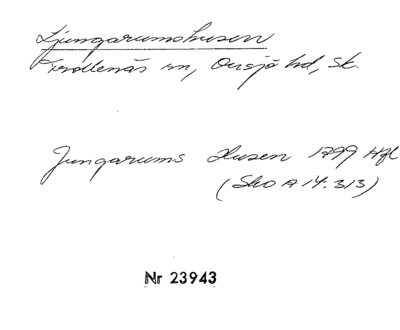 Ljungarumshusen
Trollenäs sn, Onsjö hd, Sk.
Jungarums Husen 1799 Hfl
(Sko A 14:313)
Nr 23943